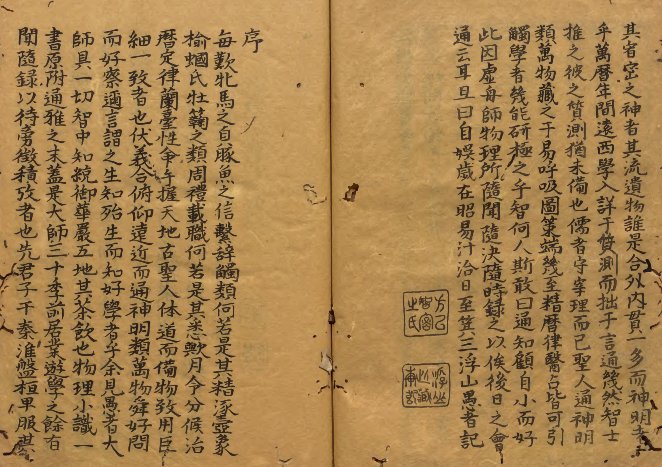 其宥密之神者其流遺物誰是合外內貫一多而神明者
乎萬曆年間遠西學入詳于質測而拙于言通幾然智士
推之彼之質測猶未備也儒者守宰理而已聖人通神明
類萬物藏之于易呼吸圖策端幾至精曆律醫占皆可引
觸學者幾能研極之乎智何人斯敢曰通知顧自小而好
此因虛舟師物理所隨聞隨決隨時錄之以俟後日之會
通云耳且曰自娛歲在昭昜汁洽日至箕三浮山愚者記
方㠯智密之氏
浮山此藏軒
序
每歎牝馬之自豚魚之信繫辭觸類何若是其精邃壺象
榆蟈氏牡鞠之類周禮載職何若是其悉歟月令分候治
曆定律蘭臺性命午握天地古聖人休道而備物致用巨
細一致者也伏羲合俯仰遠近而通神明類萬物舜好問
而好察邇言謂之生知殆生而知好學者乎余見愚者大
師具一切智中知統御華嚴五地其茶飲也物理小識一
書原附通雅之末蓋是大師三十季前居業遊學之餘有
聞隨錄以待旁徵積攷者也先君子于秦淮盤桓卑服祺